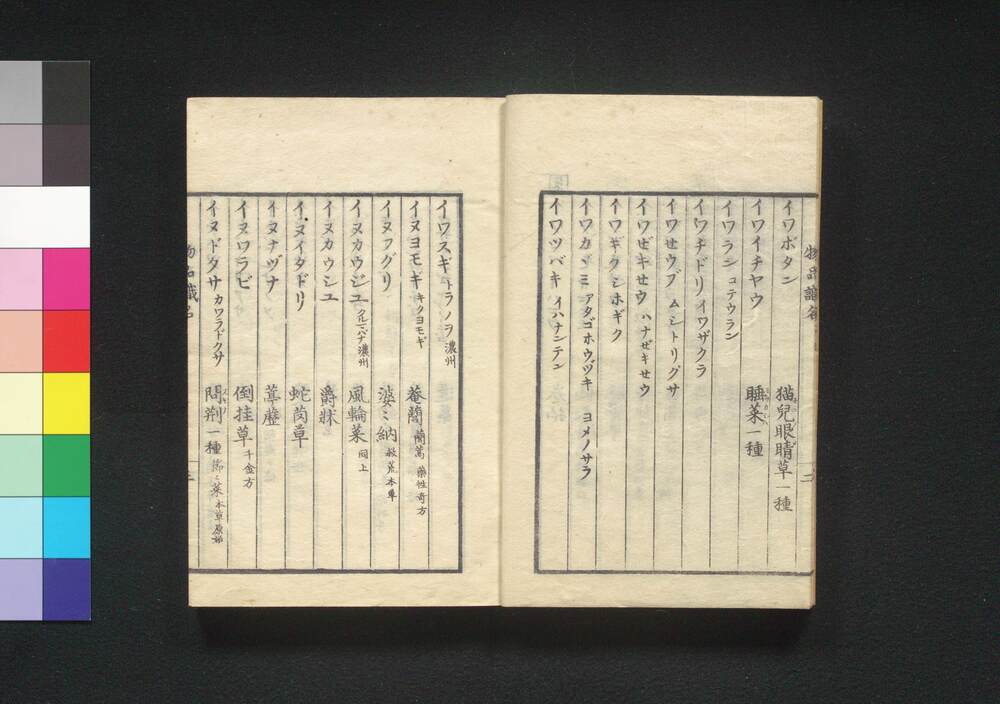 イワボタン 猫兒眼睛草一種
イワイチヤウ 睡菜一種
イワラン コテウラン
イワチドリ イワザクラ
イワせウブ ムシトリグサ
イワぜキせウ ハナぜキせウ
イワギク シホギク
イワカヾミ アタゴホウヅキ ヨメノサラ
イワツバキ イハナンテン
イワスギ トラノヲ 濃州
イヌヨモギ キクヨモギ 菴䕡 蘭蒿 藥性奇方
イヌフグリ 婆〻納 救荒本草
イヌカウジユ クルマバナ 濃州 風輪菜 同上
イヌカウシユ 爵牀
イヌイタドリ 蛇䓵草
イヌナヅナ 葶藶
イヌワラビ 倒挂草 千金方
イヌドクサ カワラドクサ 問荆一種 節〻菜 本草原始
物品識名